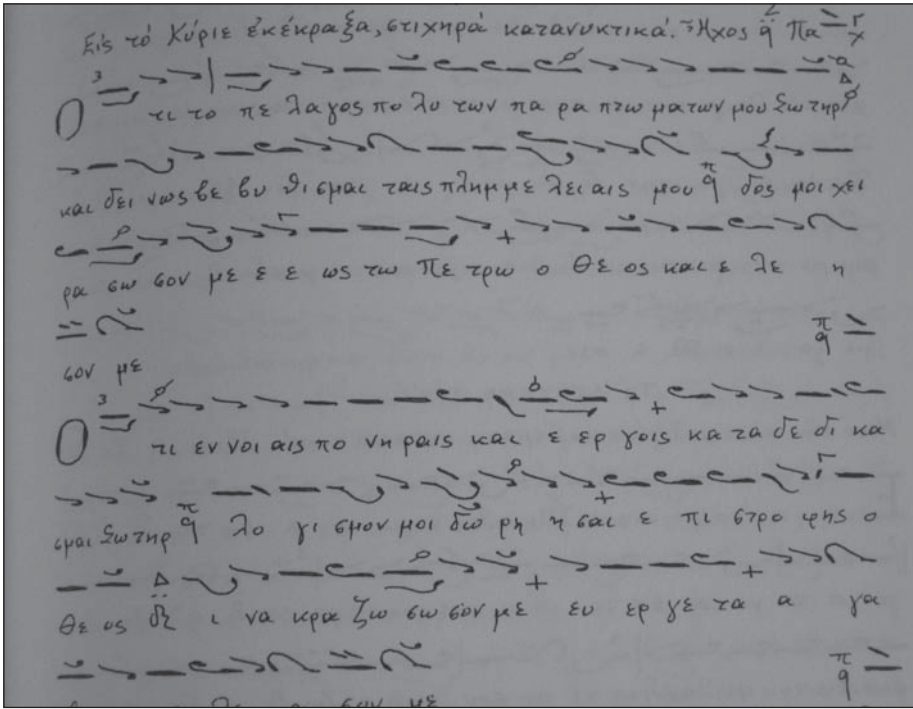 Εἰς τό Κύριε ἐκέκραξα, στιχηρά κατανυκτικά. Ἦχος q̈ Πα
Ο τι το πε λα γος πο λυ των πα ρα πτω ματων μου Σω τηρ
και δει νως βε βυ θι σμαι ταις πλημ με λει αις μου π q δος μοι χει
ρα σω σον με ε ε ως τω Πε τρω ο Θε ος και ε λε η
σον με π q
Ο τι εν νοι αις πο νη ραις και ε ερ γοις κα τα δε δι κα
σμαι Σω τηρ π q λο γι σμον μοι δω ρη η σαι ε πι στρο φης ο
Θε ος ι να κρα ζω σω σον με ευ ερ γε τα α γα
σον με π q